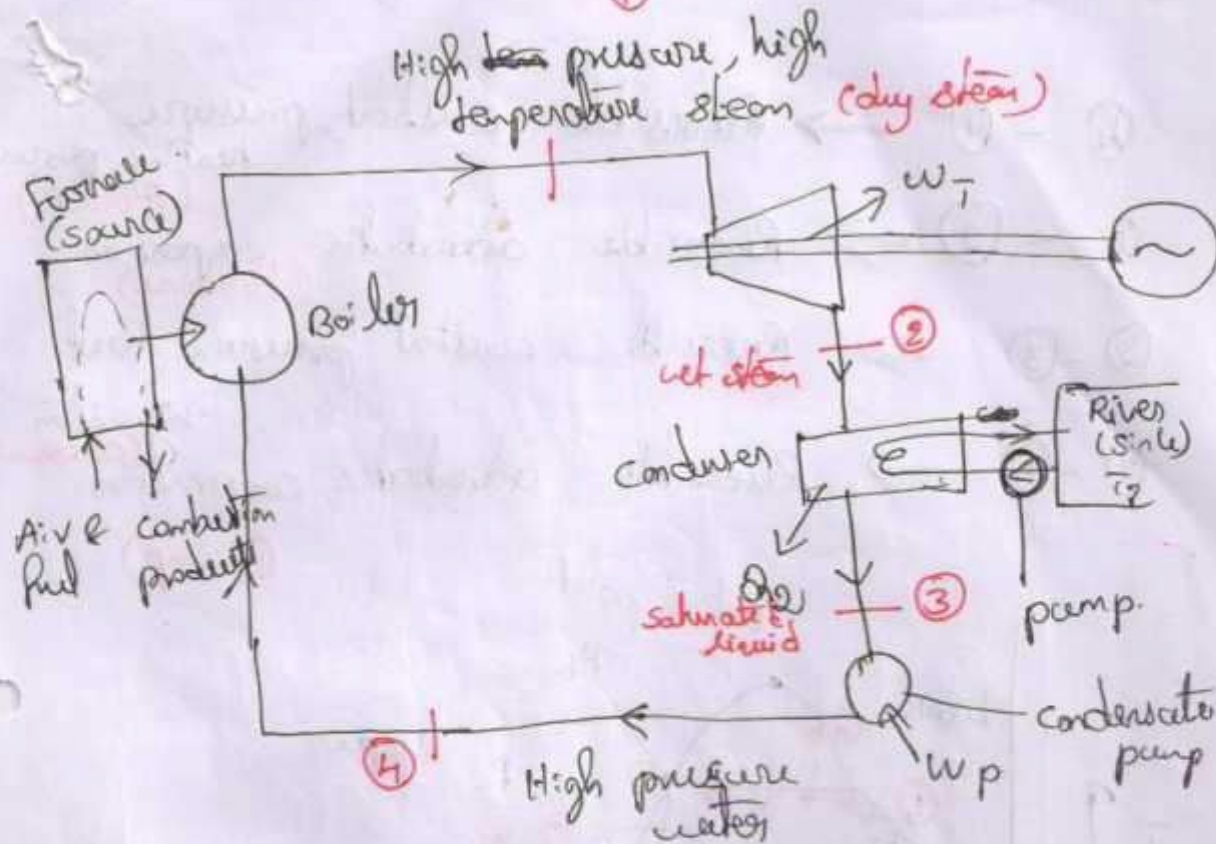 High pressure, high
temperature steam (dry steam)
Furnace
(source)
W_T
~
Boiler
②
wet steam
River
(sink)
T2
Condenser
Air &
fuel
combustion
products
Q2
③
saturated
liquid
pump.
condensate
pump
④
High pressure
water
Wp